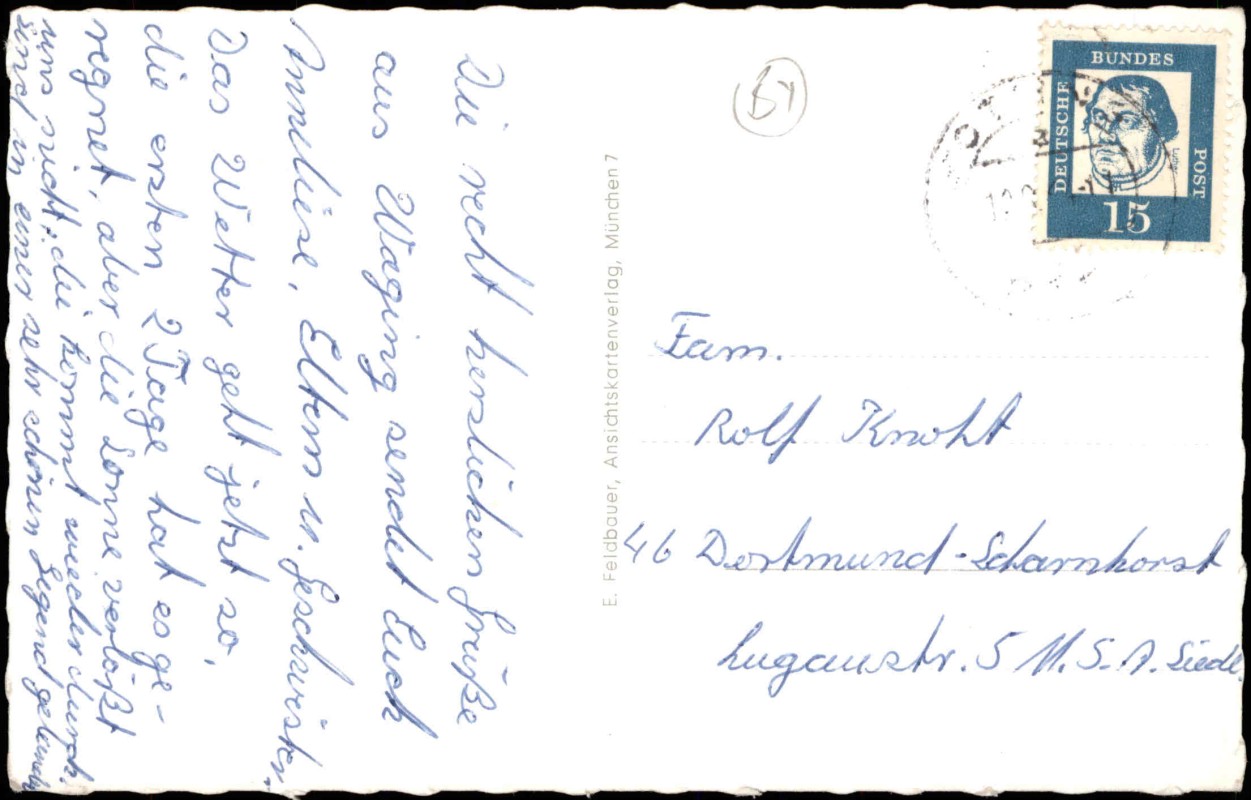 Die recht herzlichen Grüße
aus Waging sendet Euch
Anneliese, Eltern u. Geschwister.
Das Wetter geht jetzt so,
die ersten 2 Tage hat es ge-
regnet, aber die Sonne verläßt
uns nicht, die kommt wieder durch.
sind in einer sehr schönen Gegend gelandet
E. Feldbauer, Ansichtskartenverlag, München 7
BUNDES
DEUTSCHE
POST
Luther
15
Fam.
Rolf Knoht
46 Dortmund-Scharnhorst
Luganstr. 5 M.S.A. Siedl.